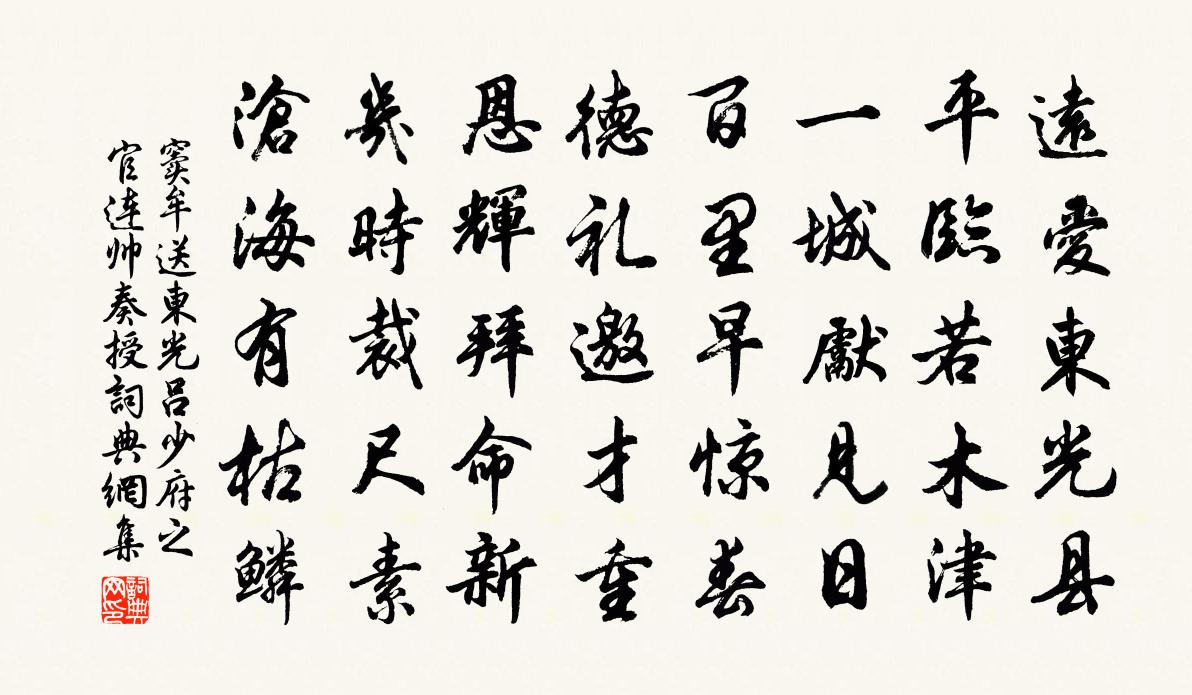 遠愛東光县
平臨若木津
一城獻見日
百里早惊春
德礼邀才重
恩輝拜命新
幾時裁尺素
滄海有枯鱗
窦牟送東光吕少府之
官连帅奏授詞典網集
詞典
网印